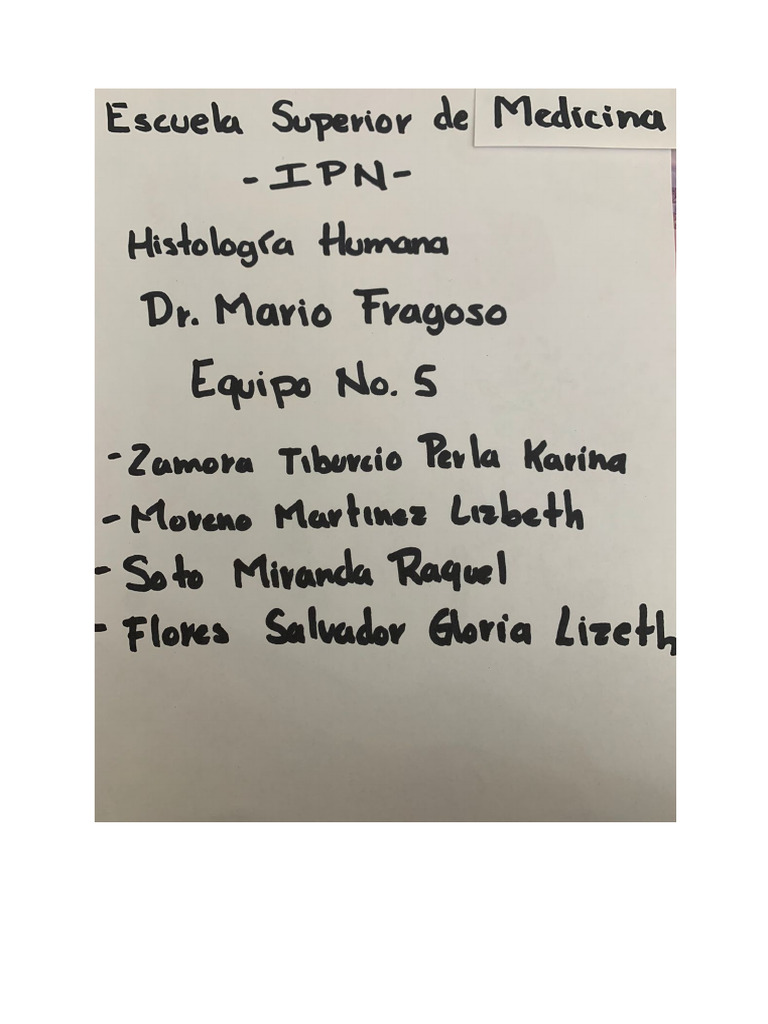 Escuela Superior de Medicina
- IPN -
Histología Humana
Dr. Mario Fragoso
Equipo No. 5
- Zamora Tiburcio Perla Karina
- Moreno Martinez Lizbeth
- Soto Miranda Raquel
- Flores Salvador Gloria Lizeth